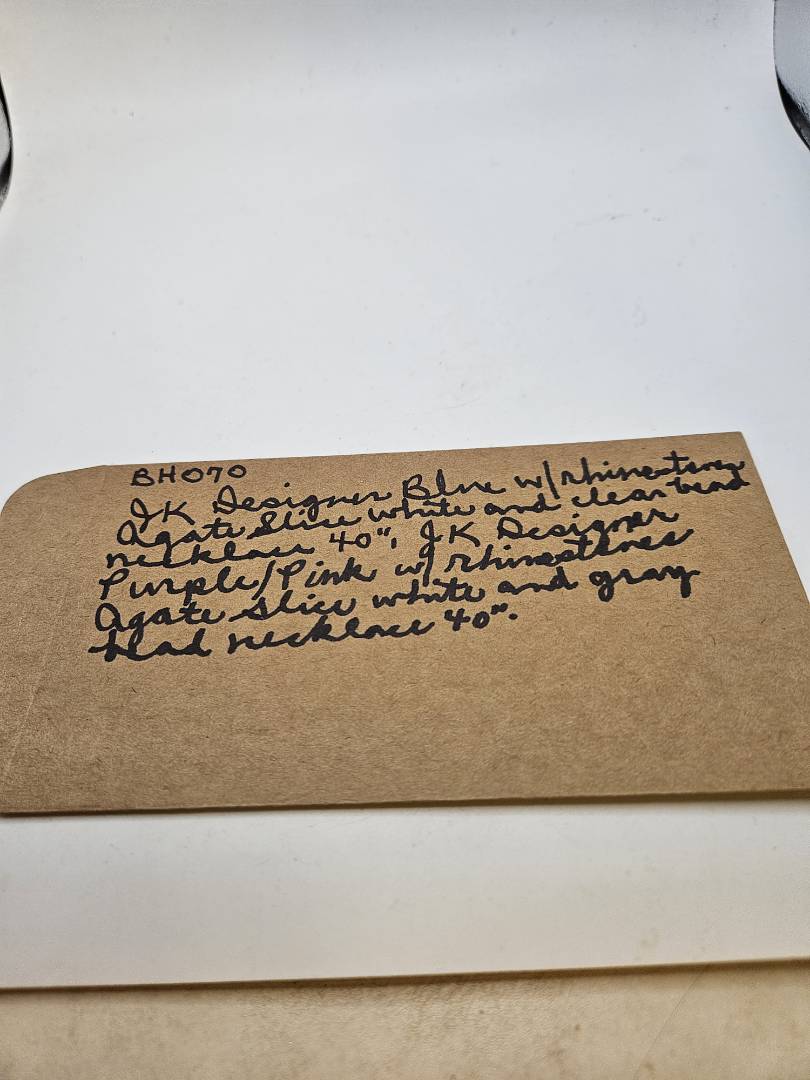 BH070
JK Designer Blue w/rhinestones
Agate Slice white and clear bead
necklace 40", JK Designer
Purple/Pink w/rhinestones
Agate Slice white and gray
bead necklace 40".